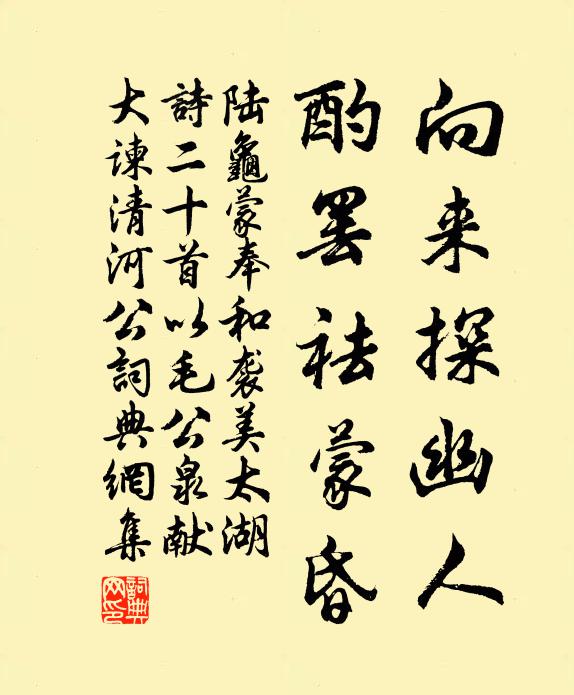 向来探幽人
酌罢祛蒙昏
陆龜蒙奉和袭美太湖
詩二十首以毛公泉献
大諫清河公詞典網集
詞典网印